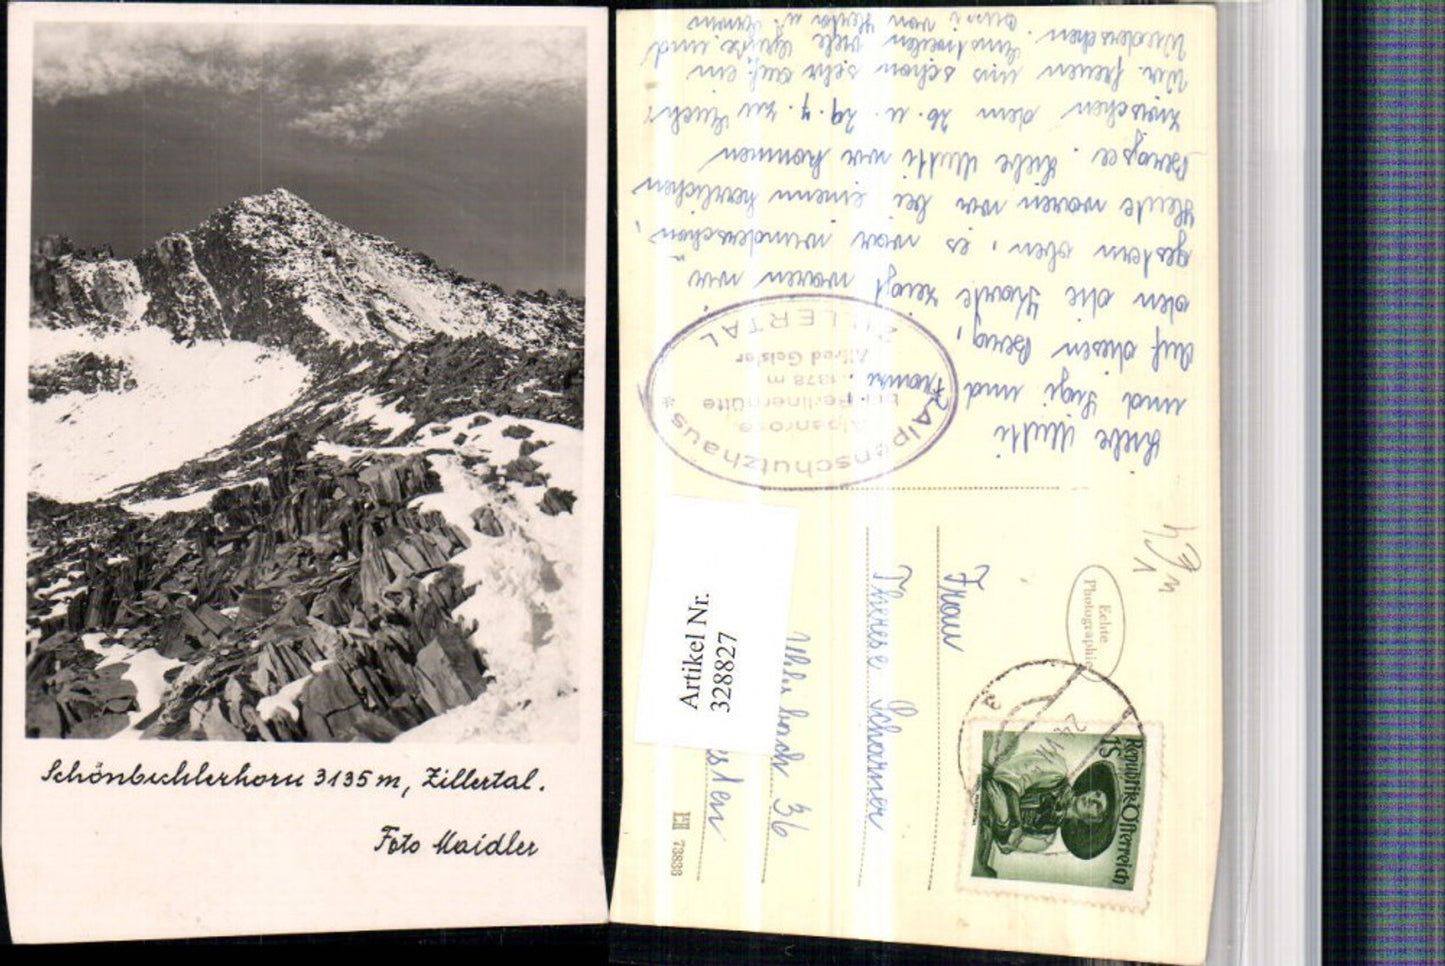 Schönbichlerhorn 3135 m, Zillertal.
Foto Maidler
Liebe Mutti
und Sigi und Franzi.
Auf diesen Berg,
den die Karte zeigt waren wir
gestern oben, es war wunderschön,
Heute waren wir bei einem herrlichen
Bergsee. Liebe Mutti wir kommen
zwischen dem 26. u. 29. 7. zu Euch.
Wir freuen uns schon sehr auf ein
Wiedersehen. Inzwischen viele Grüße und
Bussi von
Alpenschutzhaus
Alpenrose
bei Berlinerhütte
1878 m
Alfred Geisler
* ZILLERTAL *
Echte
Photographie
Republik Österreich
1S
Frau
Therese Scharner
36
Artikel Nr.
328827
73838